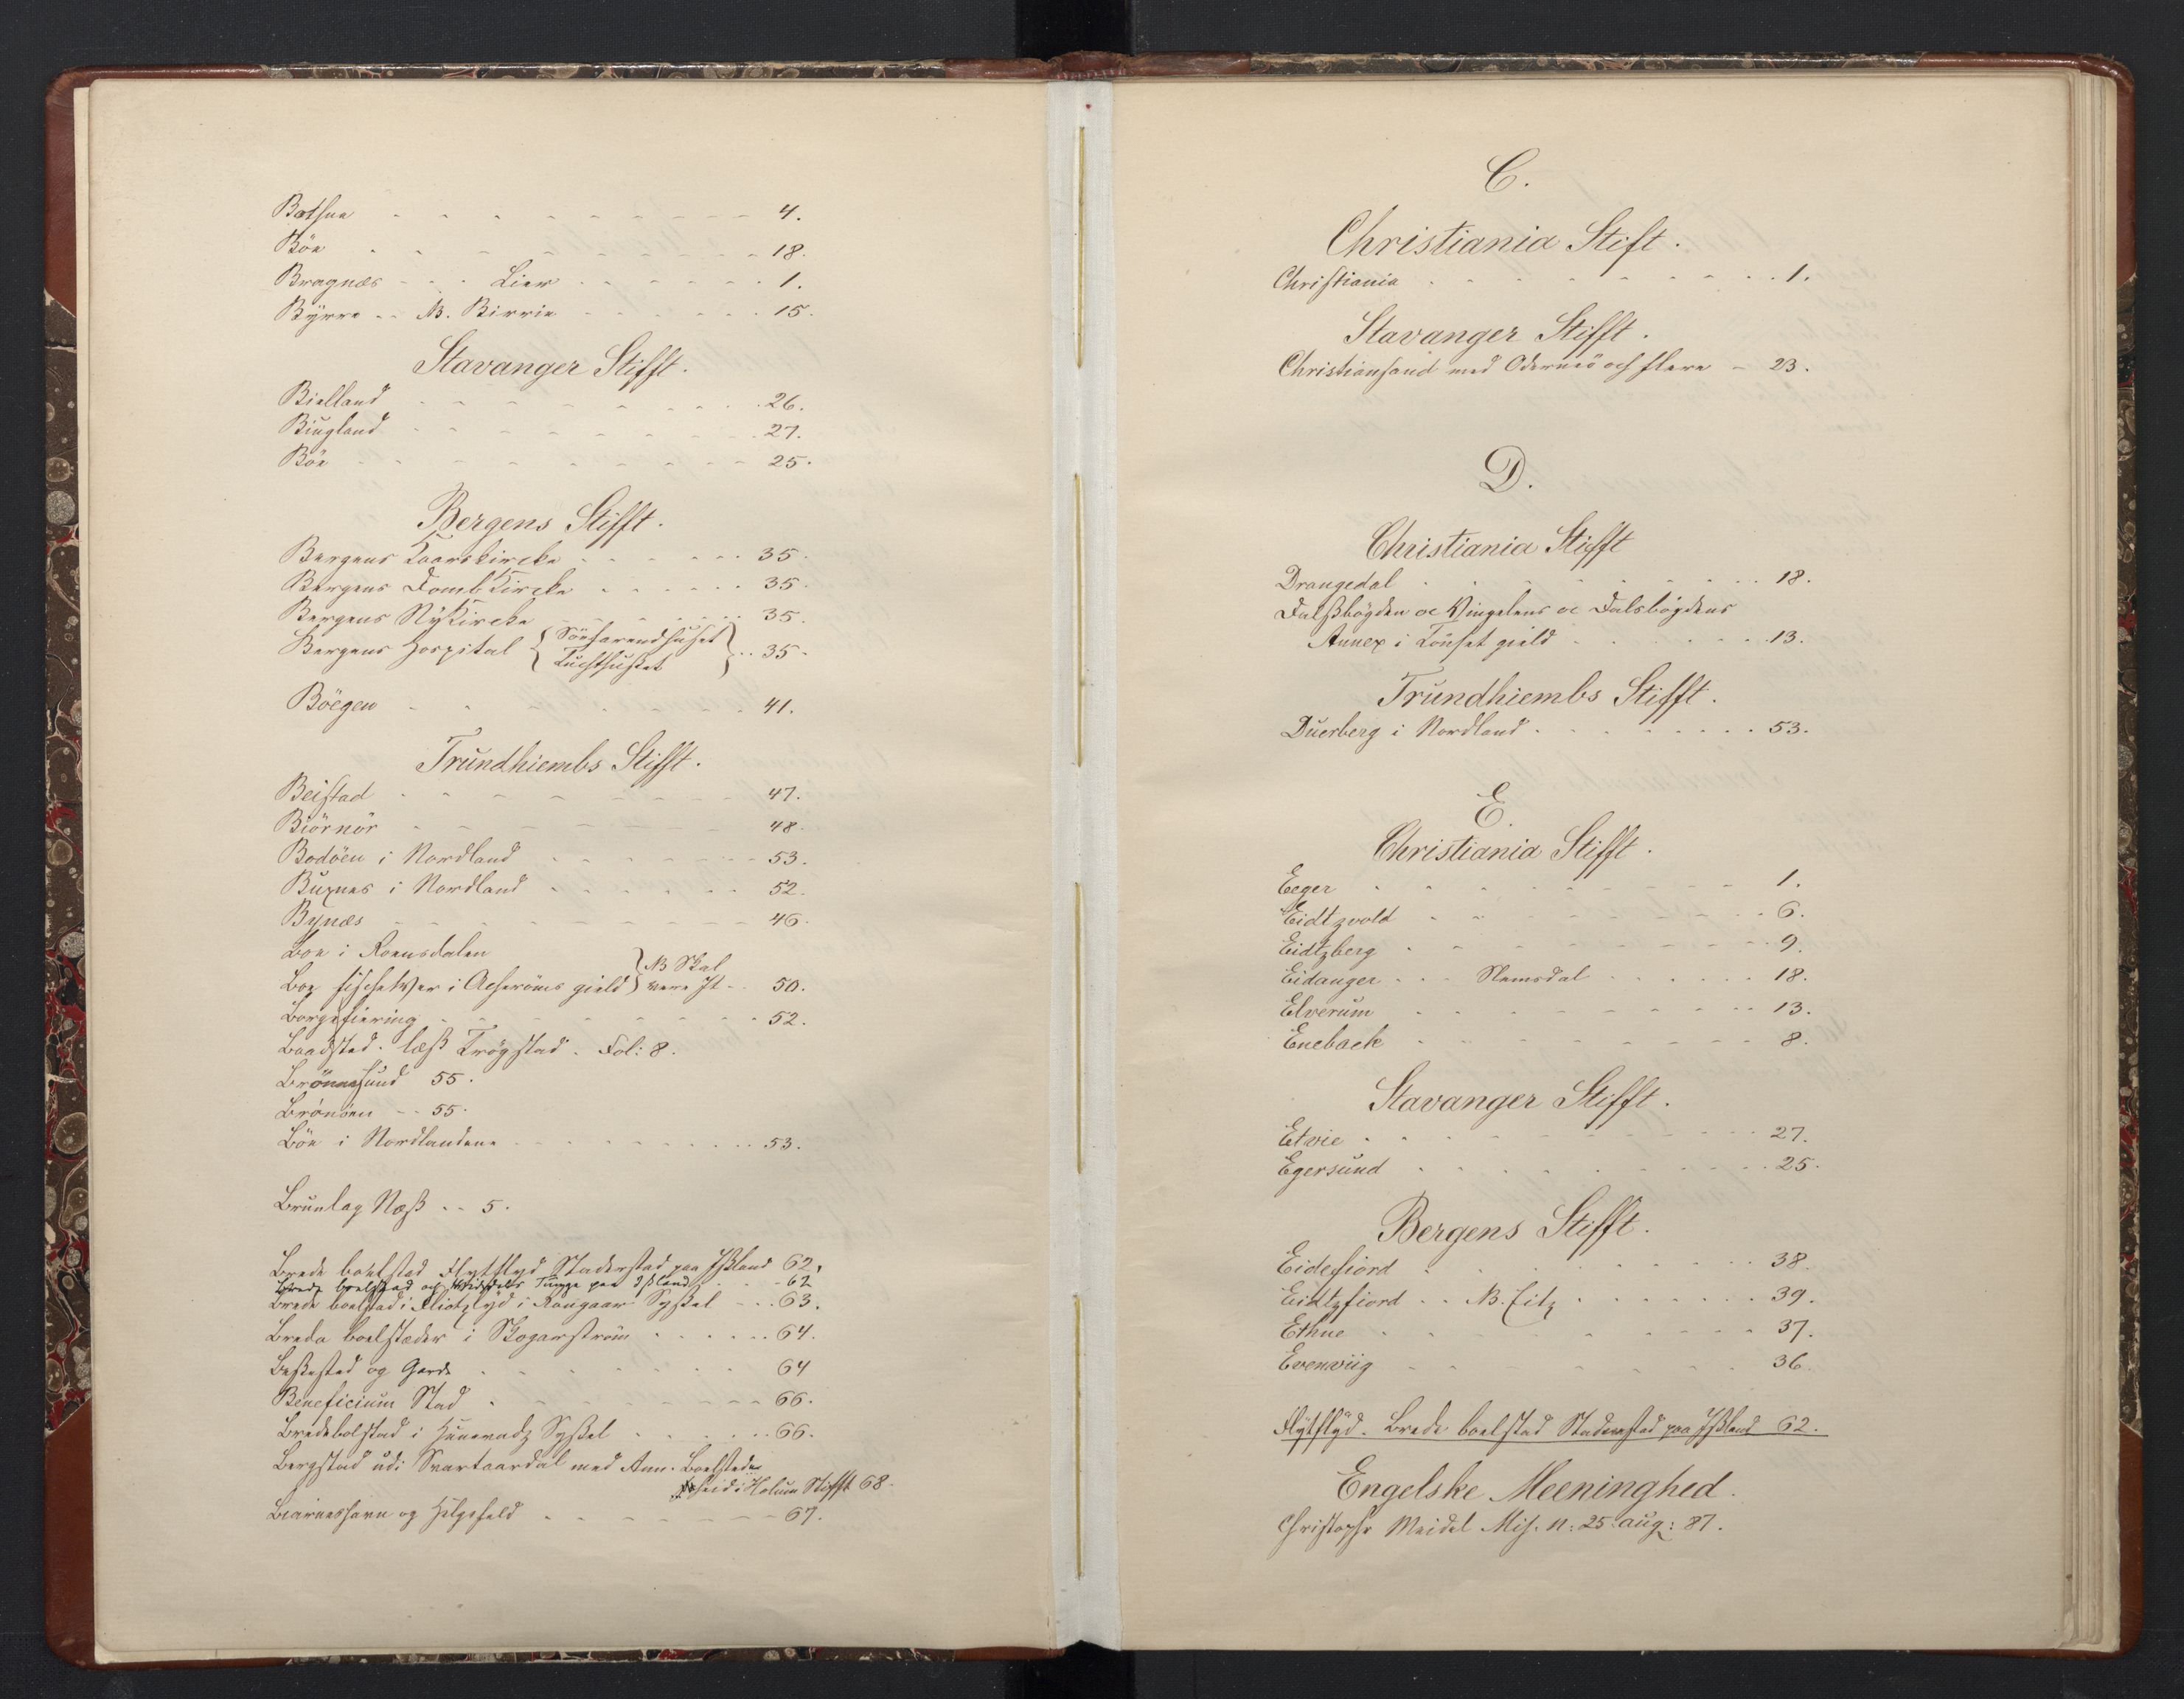 Botfne - - - - - - - - - 4.
Böe - - - - - - - - - 18.
Bragnæs - - - Lier - - - - - - 1.
Byrre - - NB. Birrie - - - - - - 15.
Stavanger Stifft.
Bielland - - - - - - - - - 26.
Biugland - - - - - - - - - 27.
Böe - - - - - - - - - 25.
Bergens Stifft.
Bergens Kaarskircke - - - - - - 35.
Bergens Domb Kircke - - - - - 35.
Bergens Nykircke - - - - - - 35.
Bergens Hospital { Söefarendhuset Tuchthuset } - - 35.
Böegen - - - - - - - 41.
Trundhiembs Stifft.
Beistad - - - - - - - - - 47.
Biörnör - - - - - - - - 48.
Bodöen i Nordland - - - - - - - 53.
Buxnes i Nordland - - - - - - 52.
Bynæs - - - - - - - - - 46.
Boe i Romsdalen
Boe fischeWer i Acheröens gield } NB Skal vere It - - 50.
Borgefiering - - - - - - - - - 52.
Baadsted. læss Trögstad. Fol: 8.
Brönnesund 55.
Brönöen - - 55.
Böe i Nordlandene - - - - - - - - - 53.
Brunlag Næss - - 5.
Brede boelsted Flytflyd Staderstad paa Issland 62.
Brede boelstad och Tunge paa Island - - - 62
Brede boelstad i Fliotzlyd i Rangaar Syssel - - - 63.
Breda boelstæder i Skogarström - - - - - - 64.
Bessested og Garde - - - - - - - 64
Beneficium Stad - - - - - - - - - 66.
Bredebolstad i Hunevadz Syssel - - - - - - 66.
Bergstad udi Svartaardal med Ann. Boelstede
i Holum Stifft 68.
Biarneshavn og Helgefeld - - - - - - - - 67.
C.
Christiania Stift.
Christiania - - - - - - - - - 1.
Stavanger Stifft.
Christiansand med Oderneö och flere - 23.
D.
Christiania Stifft
Drangedal - - - - - - - - - 18.
Dalssbögden oc Vingelens oc Dalsbögdens
Annex i Tönset gield - - - - - - - 13.
Trundhiembs Stifft.
Duerberg i Nordland - - - - - - - - 53.
E.
Christiania Stifft.
Eeger - - - - - - - - - 1.
Eidtzvold - - - - - - - - - 6.
Eidtzberg - - - - - - - - - 9.
Eidanger - - - Slemsdal - - - - - 18.
Elverum - - - - - - - - - 13.
Eneback - - - - - - - - - 8.
Stavanger Stifft.
Etwie - - - - - - - - - 27.
Egersund - - - - - - - - - 25.
Bergens Stifft.
Eidefiord - - - - - - - - - 38.
Eidtzfiord - - NB. Eitz - - - - - - - 39.
Ethne - - - - - - - - - 37.
Evenwiig - - - - - - - - - 36.
Flytflyd. Brede boelstad Staderstad paa Issland 62.
Engelske Meeninghed.
Christopher Meidel Mis. n: 25 aug: 87.